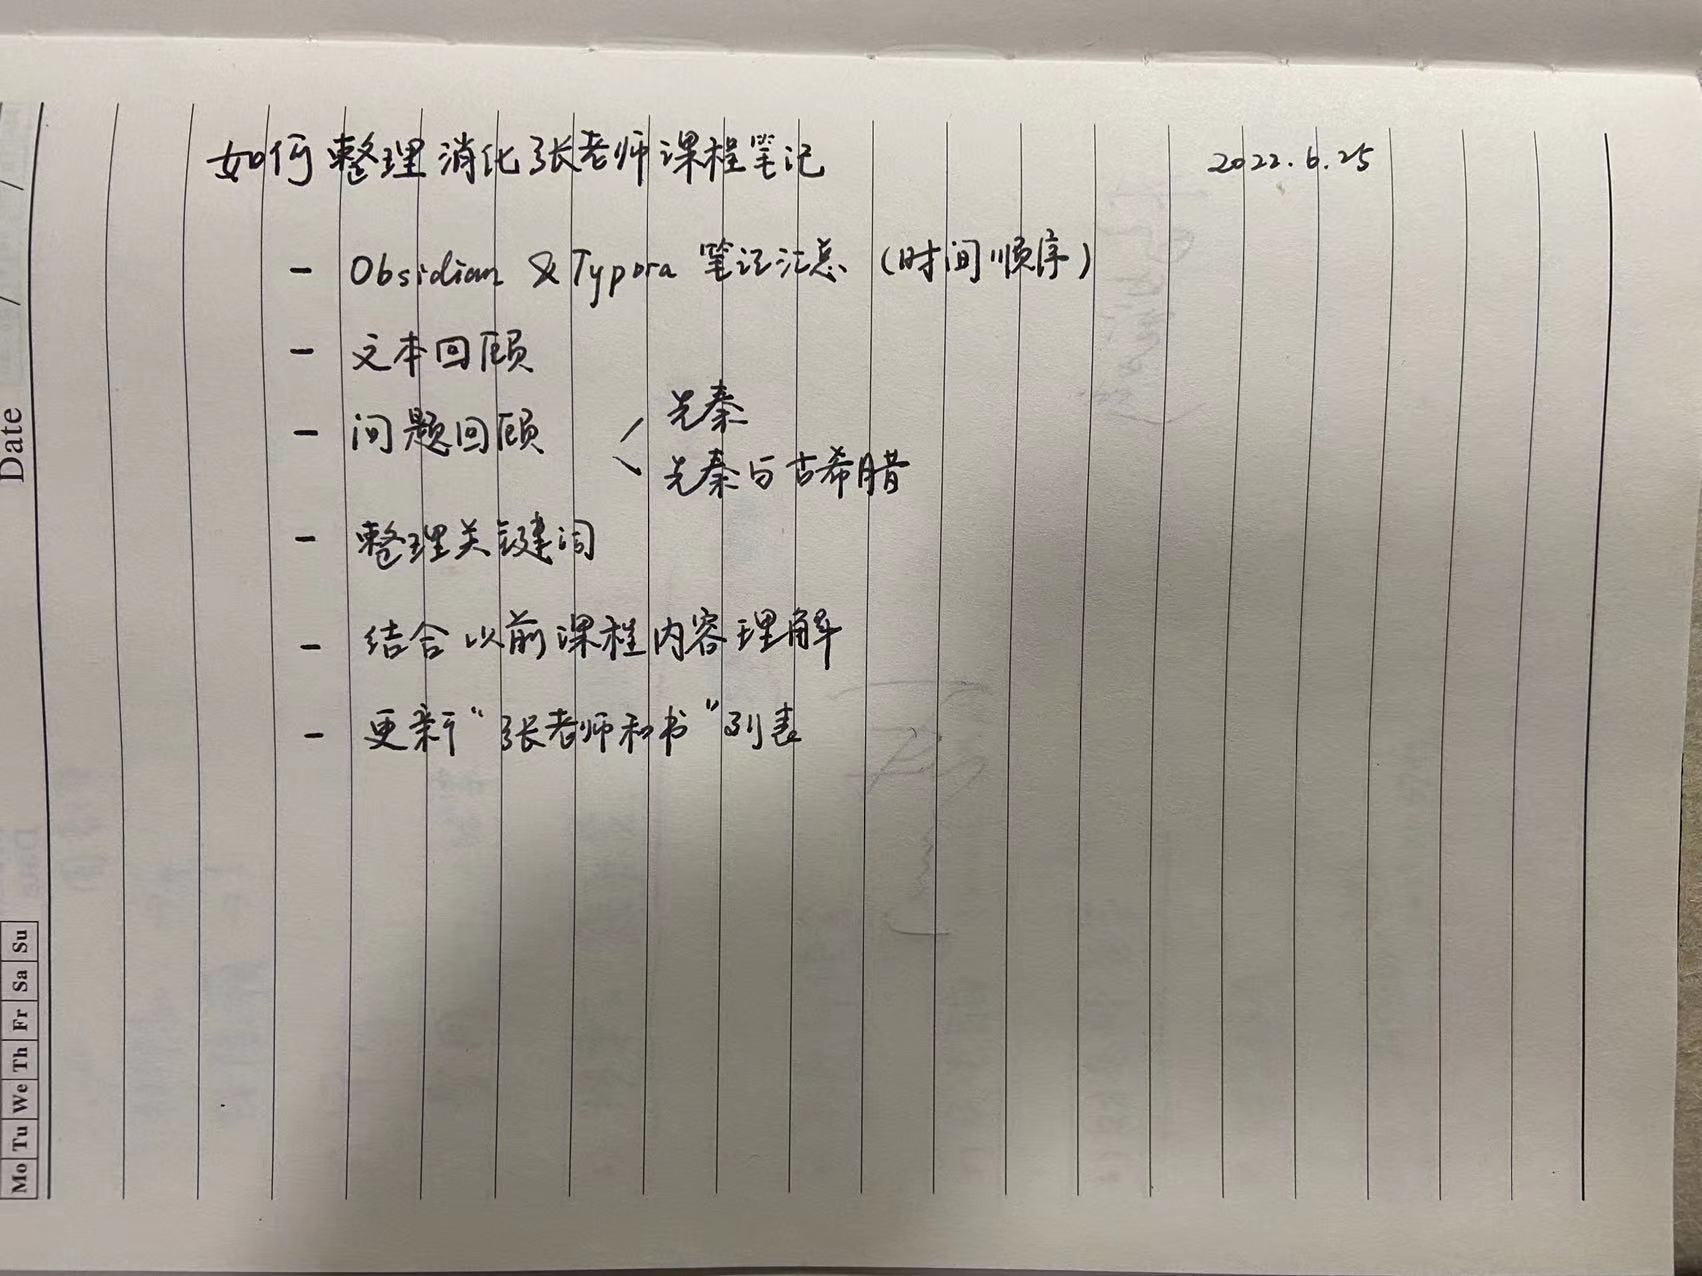 如何整理消化张老师课程笔记 2022.6.25
- Obsidian & Typora 笔记汇总（时间顺序）
- 文本回顾
- 问题回顾
先秦
先秦与古希腊
- 整理关键词
- 结合以前课程内容理解
- 更新“张老师和书”列表
Date / /
Mo Tu We Th Fr Sa Su